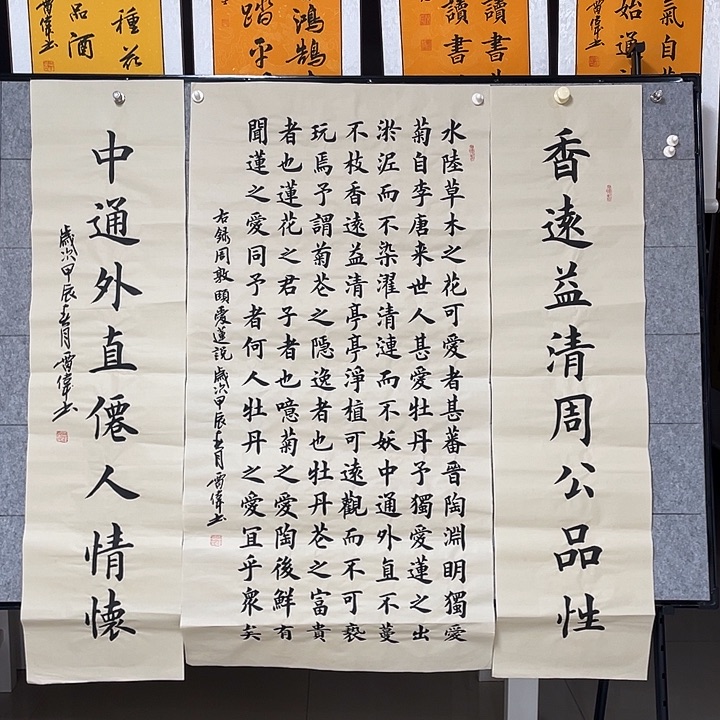 氣自
始通
雷偉书
讀書
讀書
鴻鵠
踏平
種花
品酒
雷偉书
香遠益清周公品性
水陸草木之花可愛者甚蕃晉陶淵明獨愛
菊自李唐来世人甚愛牡丹予獨愛蓮之出
淤泥而不染濯清漣而不妖中通外直不蔓
不枝香遠益清亭亭淨植可遠觀而不可褻
玩焉予謂菊花之隱逸者也牡丹花之富貴
者也蓮花之君子者也噫菊之愛陶後鮮有
聞蓮之愛同予者何人牡丹之愛宜乎衆矣
右録周敦頤愛蓮説 歲次甲辰春月雷偉书
中通外直僊人情懷
歲次甲辰春月雷偉书